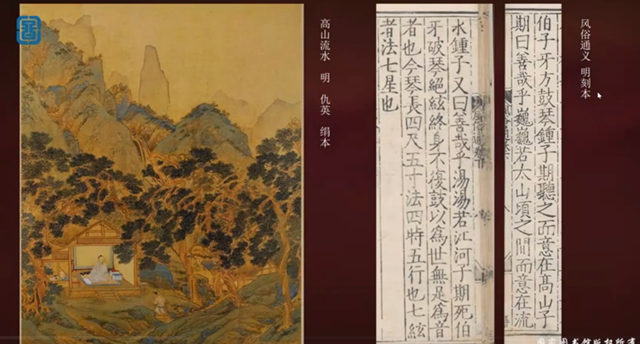 风俗通义 明刻本
伯子牙方鼓琴鍾子期聽之而意在髙山子
期曰善哉乎巍巍若太山頃之間而意在流
水鍾子又曰善哉乎湯湯若江河子期死伯
牙破琴絕絃終身不復鼓以爲世無足爲音
者也今琴長四尺五寸法四時五行也七絃
者法七星也
高山流水 明 仇英 绢本
国家图书馆版权所有